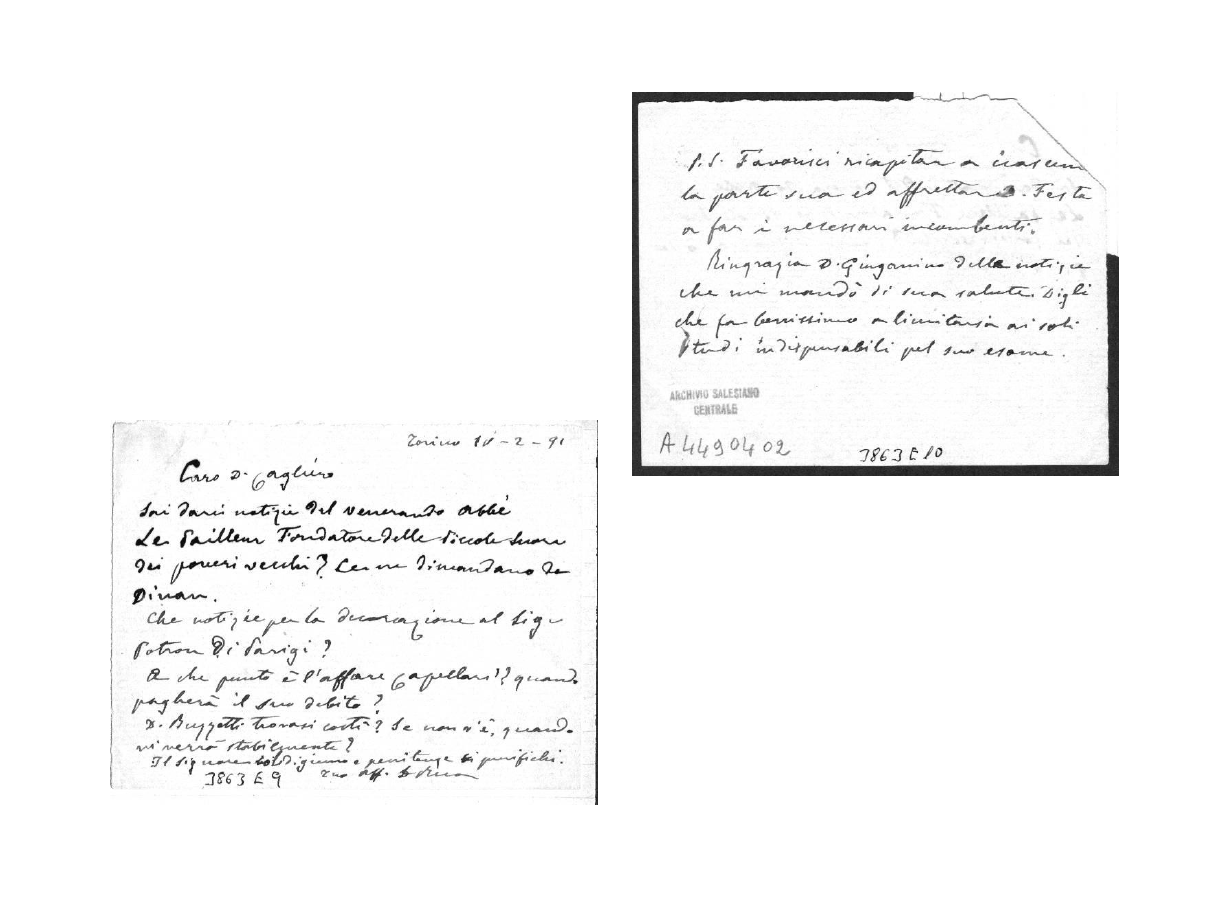 Torino 18-2-91
Caro D. Cagliero
Sai darci notizie del venerando Abbé
Le Pailleur Fondatore delle Piccole Suore
dei poveri vecchi? Ce ne dimandano da
Dinan.
Che notizie per la decorazione al Sigr
Potron di Parigi?
A che punto è l'affare Capellari? quando
pagherà il suo debito?
D. Buzzetti trovasi costì? Se non v'è, quando
vi verrà stabilmente?
Il Signore col digiuno e penitenze ci purifichi.
tuo aff. D Rua
3863 E 9
P.S. Favorisci ricapitar a ciascun
la parte sua ed affrettar D. Festa
a far i necessari incombenti.
Ringrazia D. Ginganino delle notizie
che mi mandò di sua salute. Digli
che fa benissimo a limitarsi ai soli
studi indispensabili pel suo esame.
ARCHIVIO SALESIANO
CENTRALE
A4490402
3863 E 10